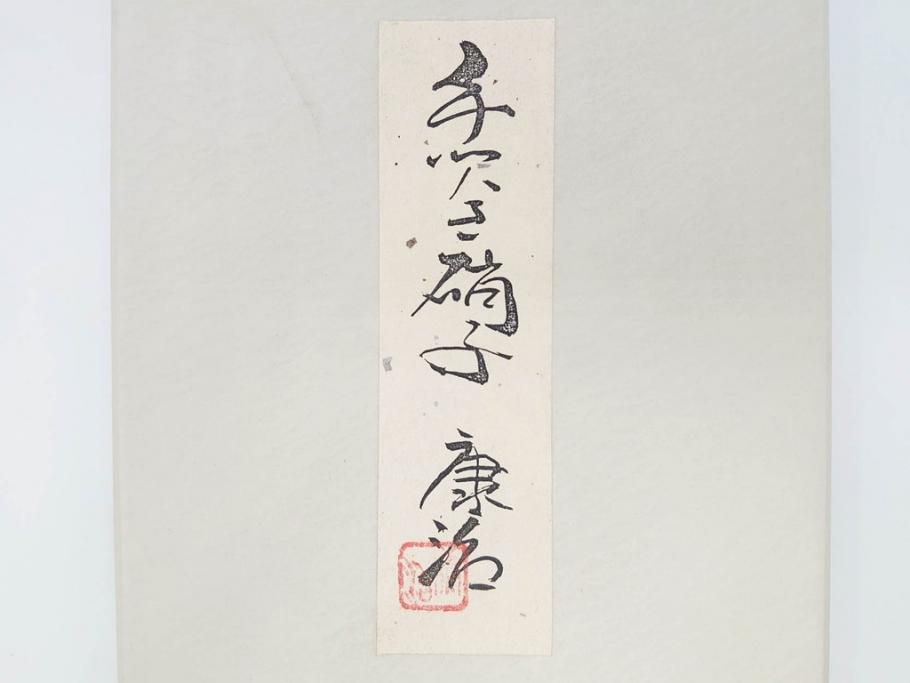 手吹き硝子 康治